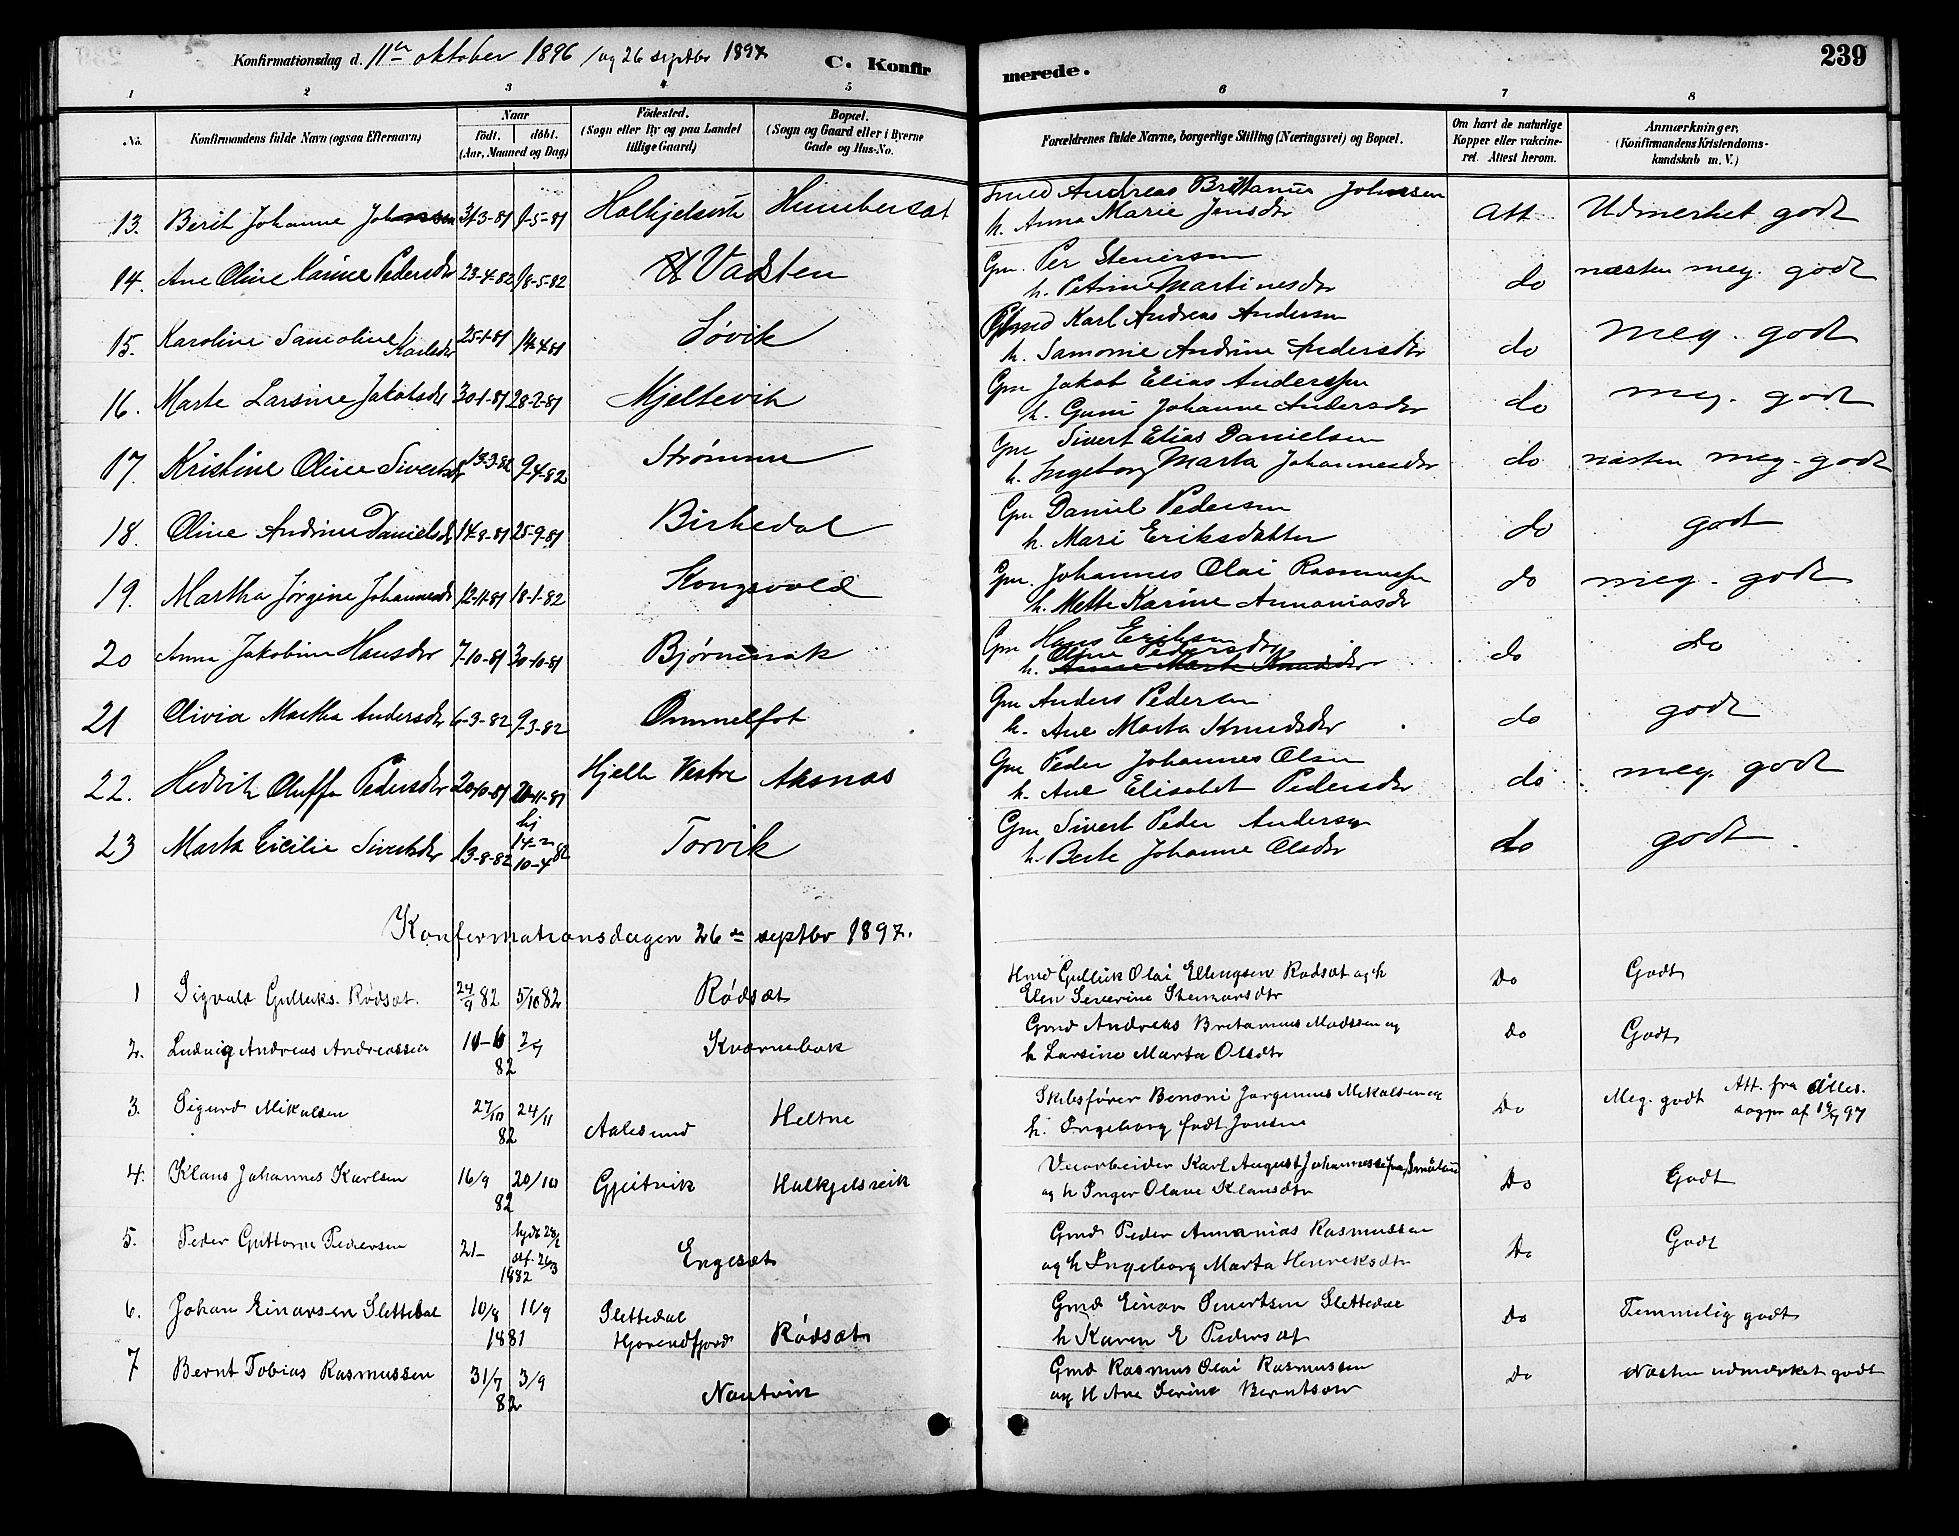 Konfirmationsdag d. 11te oktober 1896 / og 26 septbr 1897 C. Konfirmerede. 239
1 2 3 4 5 6 7 8
No. Konfirmandens fulde Navn (ogsaa Efternavn) Naar födt. döbt. (Aar, Maaned og Dag) Födested. (Sogn eller By og paa Landet tillige Gaard) Bopæl. (Sogn og Gaard eller i Byerne Gade og Hus-No. Forældrenes fulde Navne, borgerlige Stilling (Næringsvei) og Bopæl. Om havt de naturlige Kopper eller vakcineret. Attest herom. Anmærkninger, (Konfirmandens Kristendomskundskab m. V.)
13. Berit Johanne Johnsen 31-3-81 9-5-81 Halkjelsvik Humbersæt Smed Andreas Brittanus Johnsen
h. Anna Marie Jensdr Att. Udmerket godt
14. Ane Oline Karine Pedersdr 23-4-82 18-5-82 Vadsten Gm. Per Stenersen
h. Petrine Martinesdr do næsten meg. godt
15. Karoline Samoline Karlsdr 25-1-81 14-4-81 Søvik Karl Andreas Andersen
h. Samonie Andrine Andersdr do meg. godt
16. Marte Larsine Jakobsdr 30-1-81 28-2-81 Mjeltevik Gm Jakob Elias Anderssen
h. Guni Johanne Andersdr do meg. godt
17. Kristine Oline Sivertsdr 13-3-82 9-4-82 Strømme Gm Sivert Elias Danielsen
h. Ingeborg Marta Johannesdr do næsten meg. godt
18. Oline Andrine Danielsdr 14-8-81 25-9-81 Birkedal Gm Daniel Pedersen
h. Mari Eriksdatter do godt
19. Martha Jørgine Johannesdr 12-11-81 18-1-82 Kongsvold Gm. Johannes Olai Rasmussen
h. Mette Karine Annaniasdr do meg. godt
20 Anna Jakobine Hansdr 7-10-81 30-10-81 Bjørnenak Gm Hans Eriksen
h. Oline Pedersdr do do
21 Olivia Martha Andersdr 6-3-82 9-3-82 Ommelfot Gm Anders Pedersen
h. Ane Marta Knudsdr do godt
22. Hedvik Oluffa Pedersdr 20-10-81 20-11-81 Hjelle Vestre Aksnæs Gm Peder Johannes Olsen
h. Ane Elisabet Pedersdr do meg. godt
23 Marta Cicilie Sivertsdr 13-8-82 hj 14-2 10-4 82 Torvik Gm Sivert Peder Andersen
h. Berte Johanne Olsdr do godt
Konfermationsdagen 26de septbr 1897.
1 Sigvald Gulluks. Rødsæt. 24/9 82 5/10 82 Rødsæt Hmd Gulluk Olai Ellingsen Rødsæt og h
Elen Severine Steinarsdtr Do Godt
2. Ludvig Andreas Andreassen 10-6 2/7 82 Kvernebak Gmd Andreas Britanus Madssen og
h Larsine Marta Olsdtr Do Godt
3. Sigurd Mikalsen 27/10 24/11 82 Aalesund Heltne Skibsfører Benoni Jørgennus Mikalsen og
h. Ingeborg født Jonsen Do Meg. godt Att. fra Alles. sogpr af 19/7 97
4. Klaus Johannes Karlsen 16/9 20/10 82 Gjeitvik Halkjelsveik Veiarbeider Karl August Johannessen fra Småland
og h Inger Olave Klausdtr Do Godt
5. Peder Guttorm Pedersen 21- hjdt 28/2 stf. 26/3 1882 Engesæt Gmd Peder Annanias Rasmussen
og h Ingeborg Marta Henriksdtr Do Godt
6. Johan Einarsen Slettedal 10/8 11/9 1881 Slettedal Hjørendfjord Rødsæt Gmd Einar Sivertsen Slettedal
h Karen E Pedersdt Do Temmelig godt
7 Bernt Tobias Rasmussen 31/7 3/9 82 Nautvik Gmd Rasmus Olai Rasmussen
og H Ane Serine Berntsdtr do Næsten udmærket godt